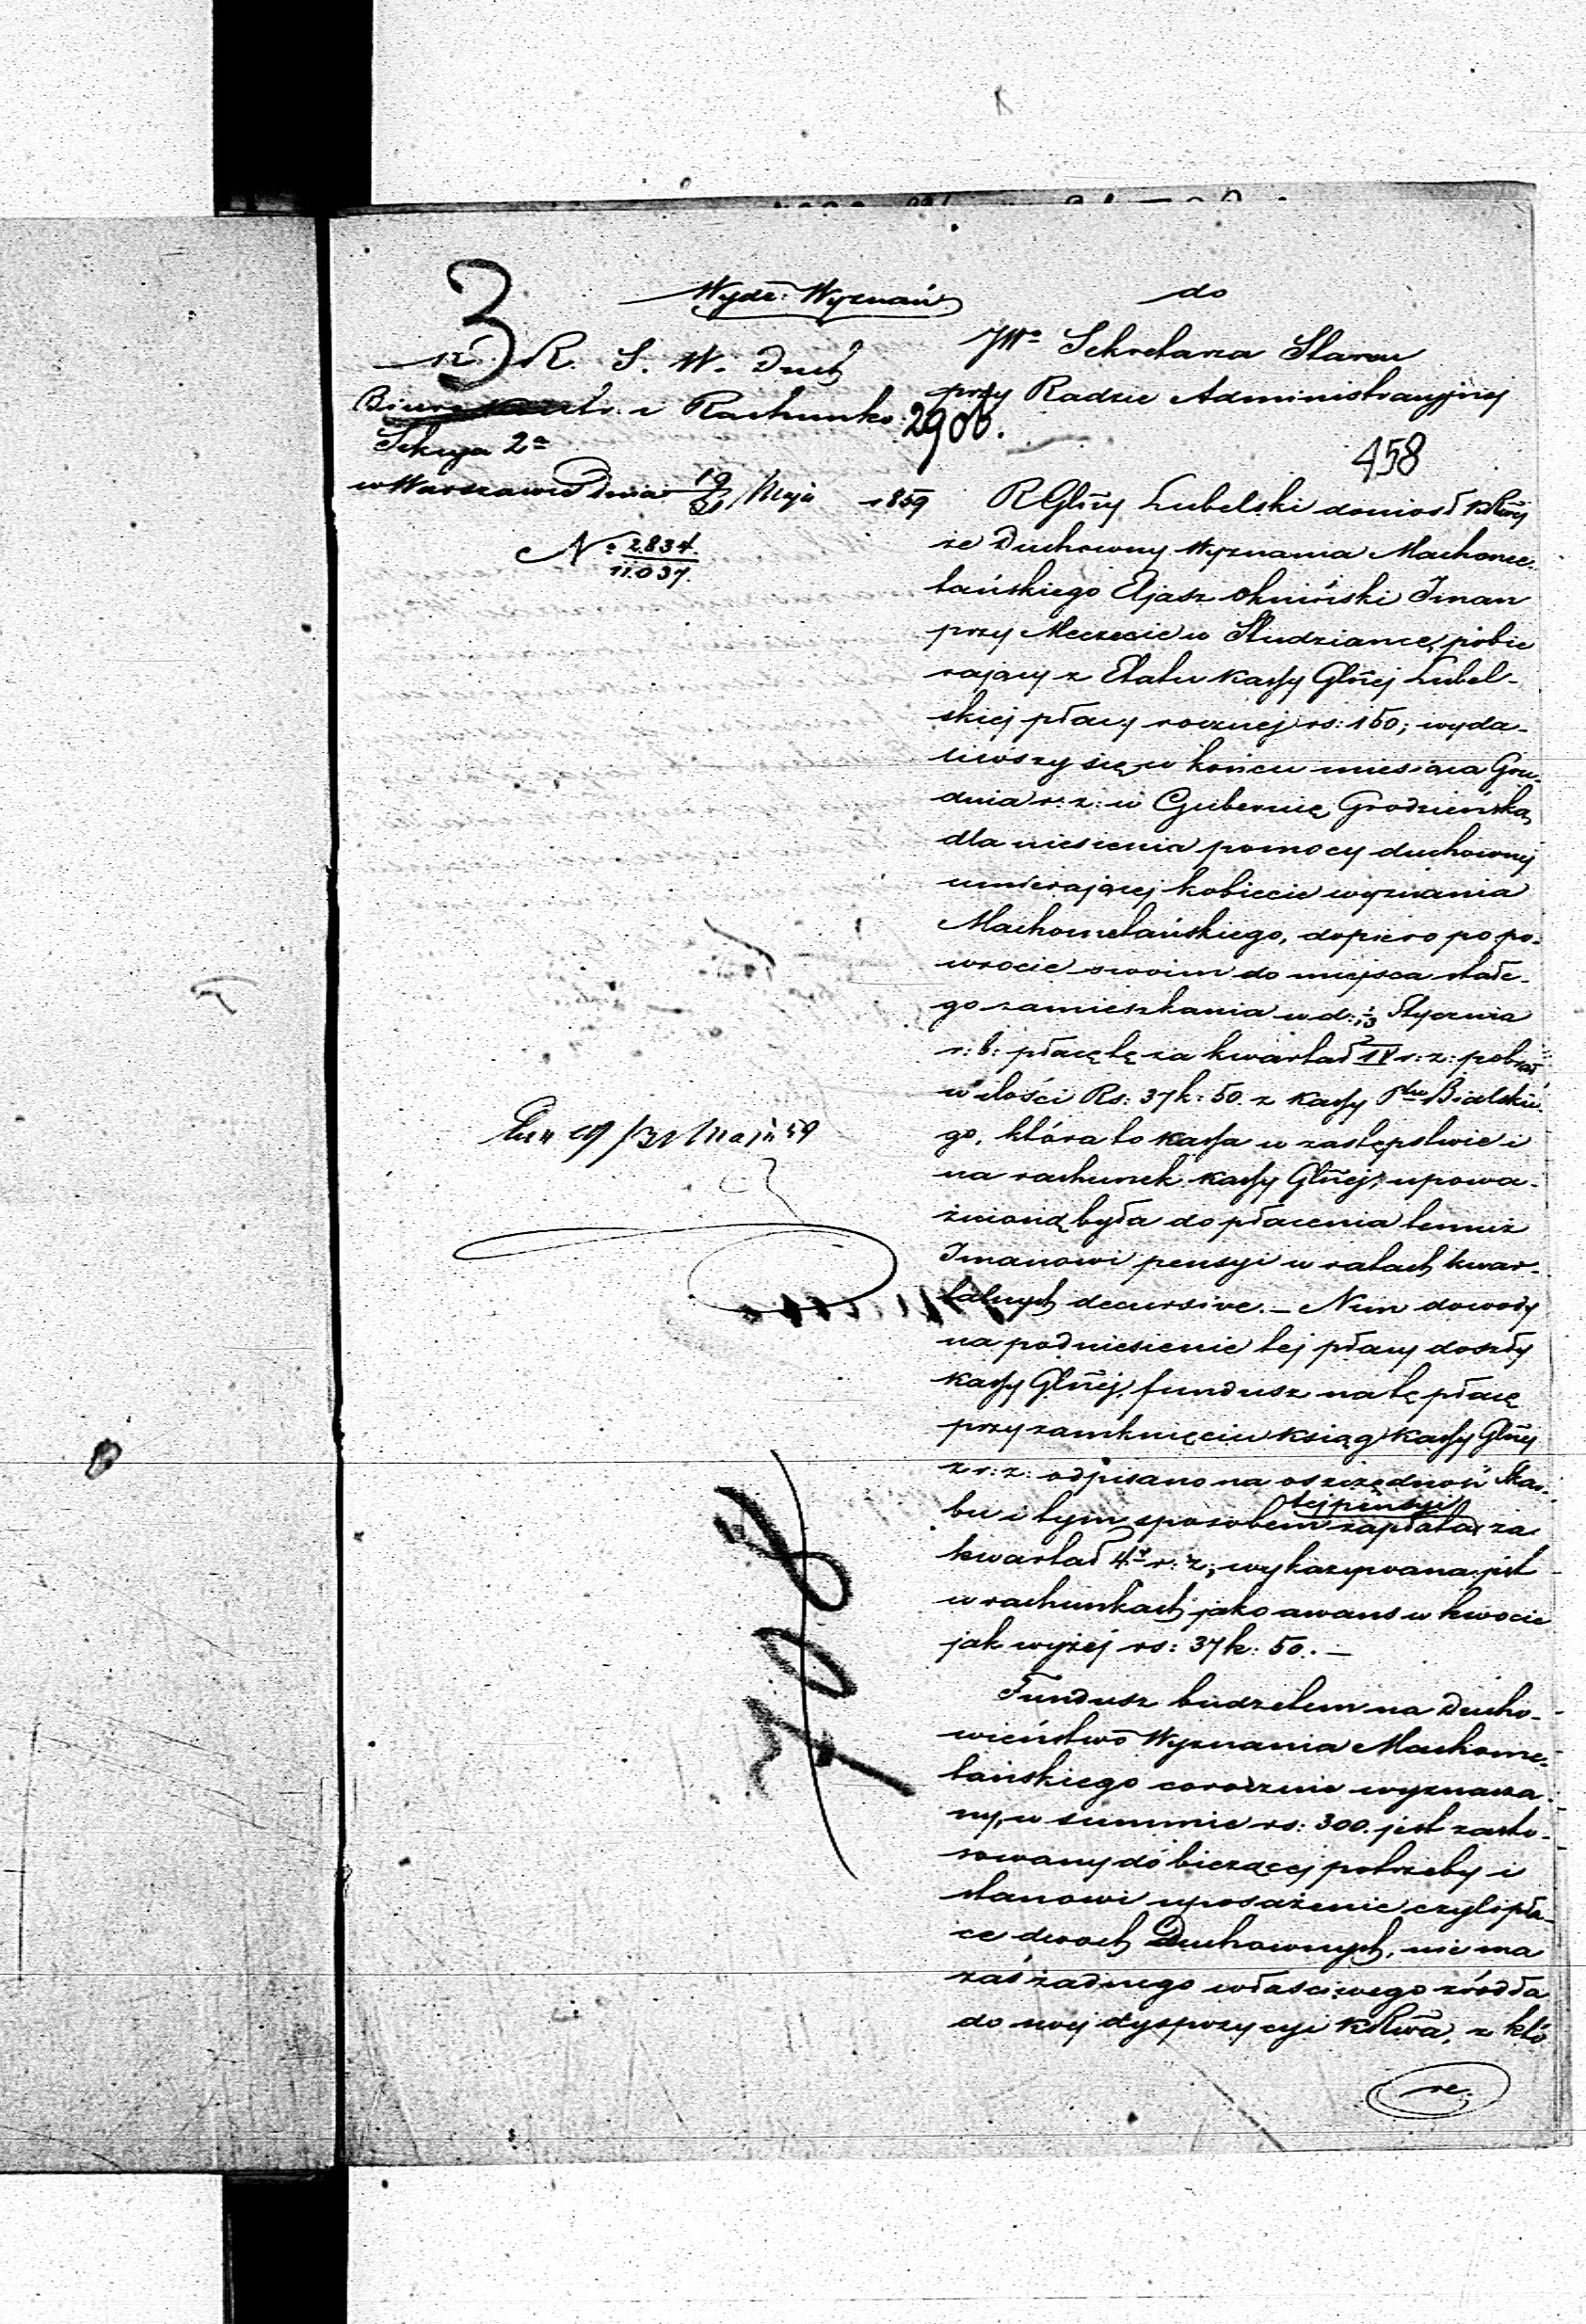 3
Wydz: Wyznań
K. R. S. W. Duch
Kontr. i Rachunko:
Sekcya 2ª
w Warszawie Dnia 19/31 Maja 1859
Nº 2834/11.037.
do
JWº Sekretarza Stanu
przy Radzie Administracyjnej
2906.
458
R Glñy Lubelski doniosł KRwej
że Duchowny Wyznania Machome-
tańskiego Eljasz Okniński Iman
przy Meczecie w Studziance, pobie
rający z Etatu Kassy Glñej Lubel-
skiej płacy rocznej rs: 150; wyda-
liwszy się w końcu miesiąca Gru-
dnia r: z: w Gubernię Grodzieńską
dla niesienia pomocy duchownej
umierającej kobiecie wyznania
Machometańskiego, dopiero po po-
wrocie swoim do miejsca stałe-
go zamieszkania w d: Stycznia
r: b: płacę tę za kwartał IV r: z: pobrał
w ilości Rs: 37 k: 50. z Kassy Ptu Bialskie
go, która to Kassa w zastępstwie i
na rachunek Kassy Glñej, upowa-
żnioną była do płacenia temuż
Imanowi pensyi w ratach kwar-
talnych decursive. — Nim dowody
na podniesienie tej płacy doszły
Kassy Glñej, fundusz na tę płacę
przy zamknięciu Ksiąg Kassy Glñej
z r: z: odpisano na oszczędność Skar-
bu i tym sposobem zapłata tej pensyi za
kwartał 4ty r: z; wykazywana jest
w rachunkach jako awans w kwocie
jak wyżej rs: 37 k: 50. —
Fundusz budżetem na Ducho-
wieństwo Wyznania Machome-
tańskiego corocznie wyznacza-
ny, w summie rs: 300. jest zasto-
sowany do bieżącej potrzeby i
stanowi uposażenie czyli pła-
ce dwóch Duchownych, nie ma
zaś żadnego właściwego źródła
do swej dyspozycyi KRwa, z któ
re.
19/31 Maja 59